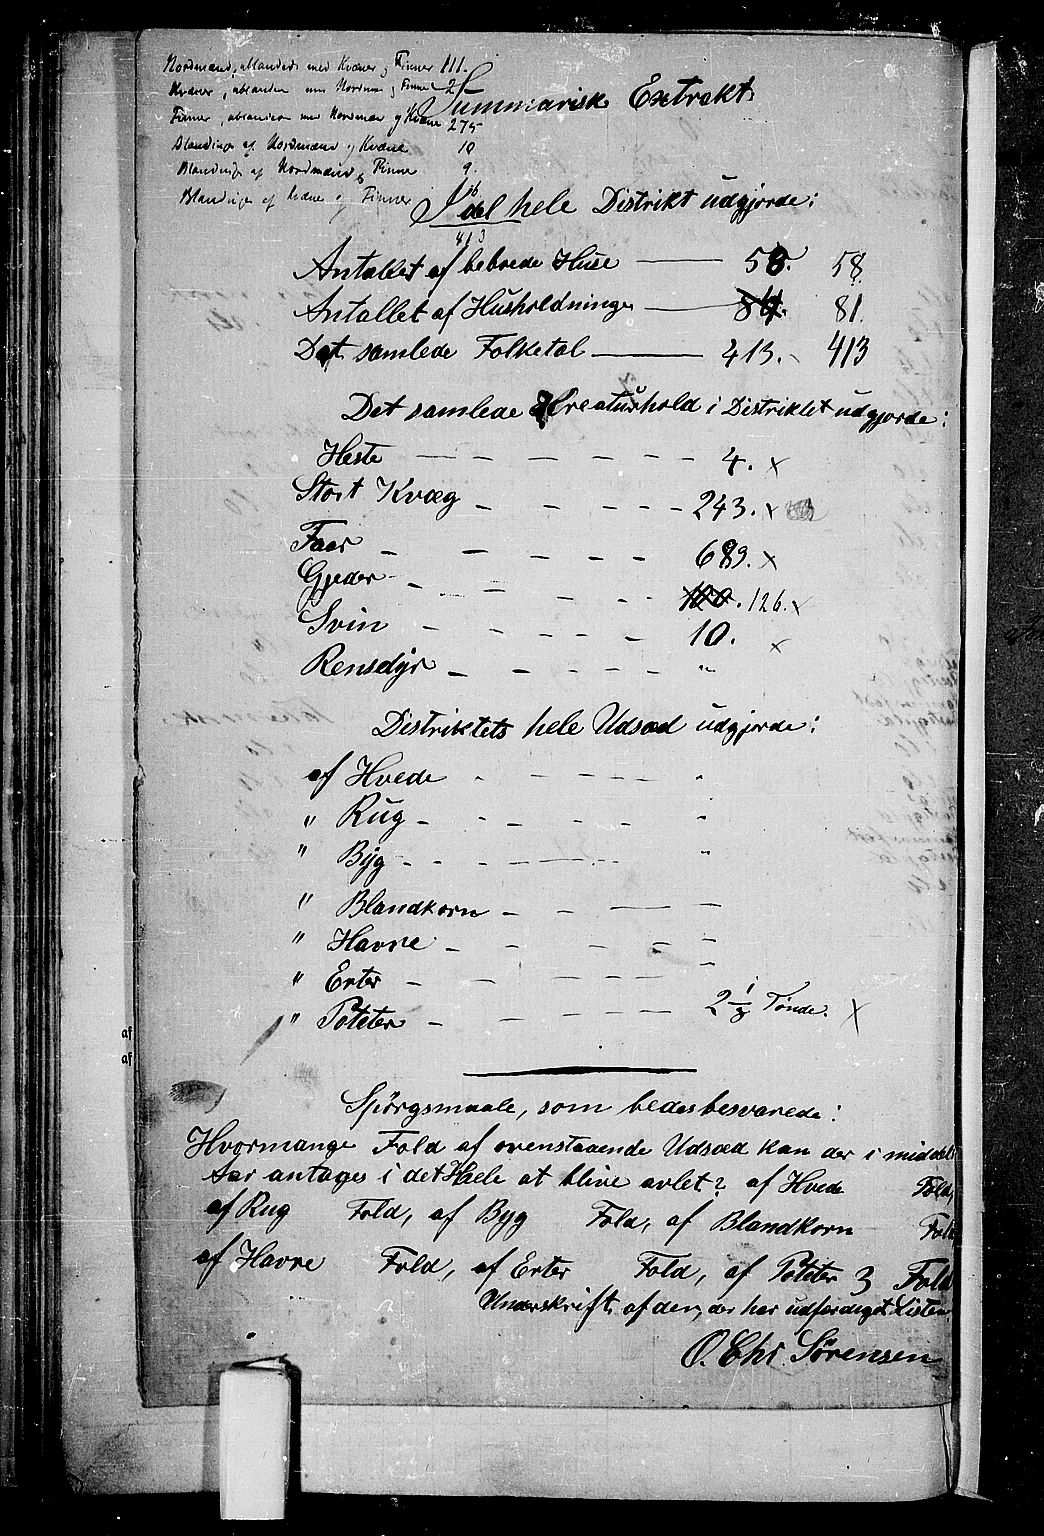 Nordmænd, ublandede med Kvæner og Finner 111.
Kvæner, ublandede med Nordmæn og Finner 2
Finner, ublandede med Nordmæn og Kvæne 275
Blandinger af Nordmænd og Kvæne 10
Blandinger af Nordmænd og Finne 9.
Blandinger af Kvæne og Finner 6
413
Summarisk Extrakt
I det hele Distrikt udgjorde:
Antallet af beboede Huse 58. 58.
Antallet af Husholdninger 84. 81.
Det samlede Folketal 413. 413
Det samlede Kreaturhold i Distriktet udgjorde:
Heste 4. x
Stort Kvæg 243. x
Faar 689. x
Gjeder 100. 126. x
Svin 10. x
Rensdyr "
Distriktets hele Udsæd udgjorde:
af Hvede "
" Rug "
" Byg "
" Blandkorn
" Havre
" Erter
" Poteter 2 1/2 Tønde. x
Spörgsmaale, som bedes besvarede:
Hvormange Fold af ovenstaaende Udsæd kan der i middels
Aar antages i det Hele at blive avlet? af Hvede Fold,
af Rug Fold, af Byg Fold, af Blandkorn Fold,
af Havre Fold, af Erter Fold, af Poteter 3 Fold
Underskrift af den, der har udfærdiget Listen.
O. Chr. Sörensen
af
af